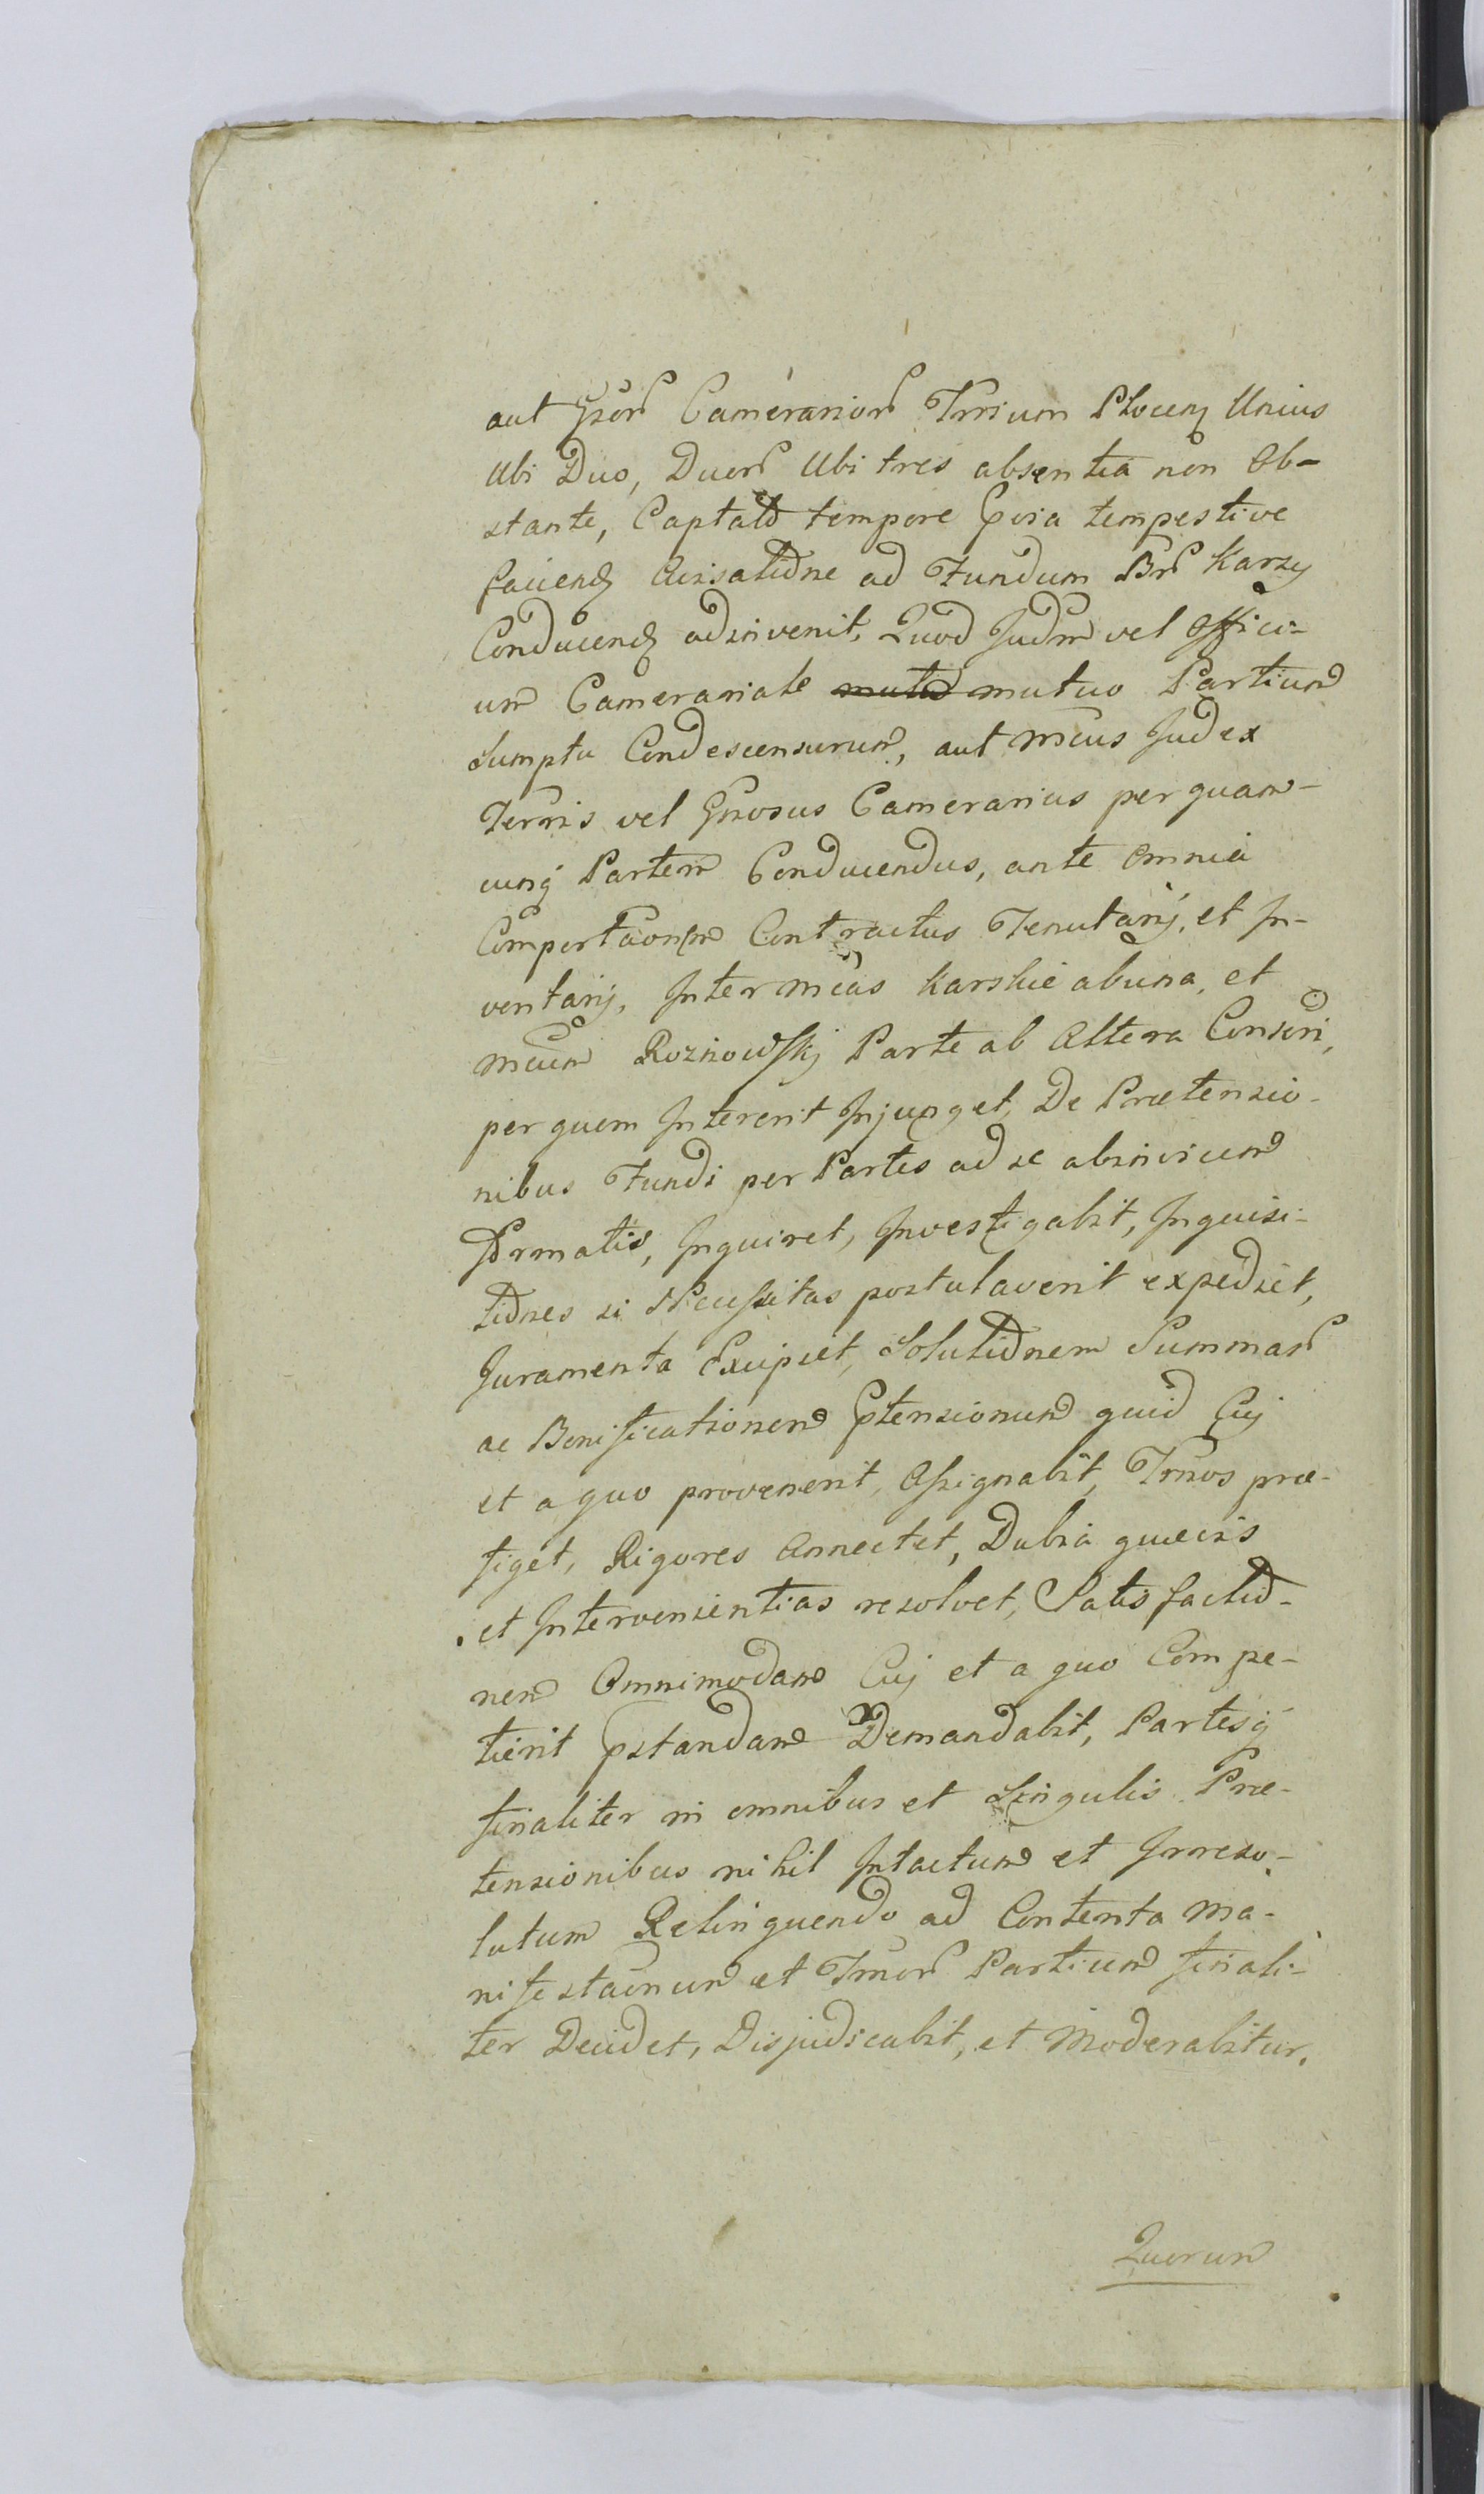 aut Gsor Camerarior Trrium Plocen Unius
Ubi Duo, Duor Ubi tres absentia non Ob-
stante, Captato tempore
faciend Avisatione ad Fundum Bnr Karzy
Conducend adinvenit, Quod Judm vel Offici-
um Camerariale mutuo Partium
Sumptu Condescensurum, aut Mcus Judex
Terris vel Gnosus Camerarius per quam-
cunq Partem Conducendus, ante omnia
Comportaonem Contractus Tenutarij, et In-
ventarij, Inter Mcas Karskie abuna, et
Mcum Roznowskj Parte ab Altera
per quem Intererit Injunget, De Prætensio-
nibus Fundi per Partes ad se abinvicem
Formatis, Inquiret, Investigabit, Inquisi-
tiones si Necessitas postulaverit expediet,
Juramenta Excipiet, Solutionem Summar
ac Bonificationem Ptensionum quid Cuj
et a quo provenerit, Assignabit, Tmnos præ-
figet, Rigores Annectet, Dubia quævis
et Intervenientias resolvet, Satisfactio-
nem Omnimodam Cuj et a quo Compe-
tierit Pstandam Demandabit, Partesq
finaliter in omnibus et Singulis Præ-
tensionibus nihil Intactum et Irreso-
lutum Relinquendo ad Contenta Ma-
nifestaonum et Tmnor Partium finali-
ter Decidet, Disjudicabit, et Moderabitur.
Quorum